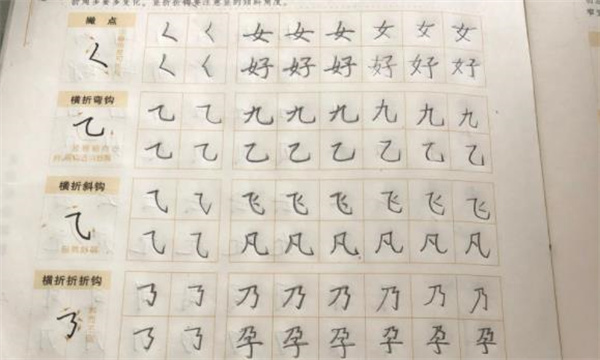 撇点
く く く 女 女 女 女 女 女
く く 好 好 好 好 好 好
横折弯钩
乙 ⺄ ⺄ 九 九 九 九 九 九
⺄ ⺄ 乙 乙 乙 乙 乙 乙
横折斜钩
⺄ ⺄ ⺄ 飞 飞 飞 飞 飞 飞
⺄ ⺄ 凡 凡 凡 凡 凡 凡
横折折折钩
㇡ ㇡ ㇡ 乃 乃 乃 乃 乃 乃
㇡ ㇡ 孕 孕 孕 孕 孕 孕